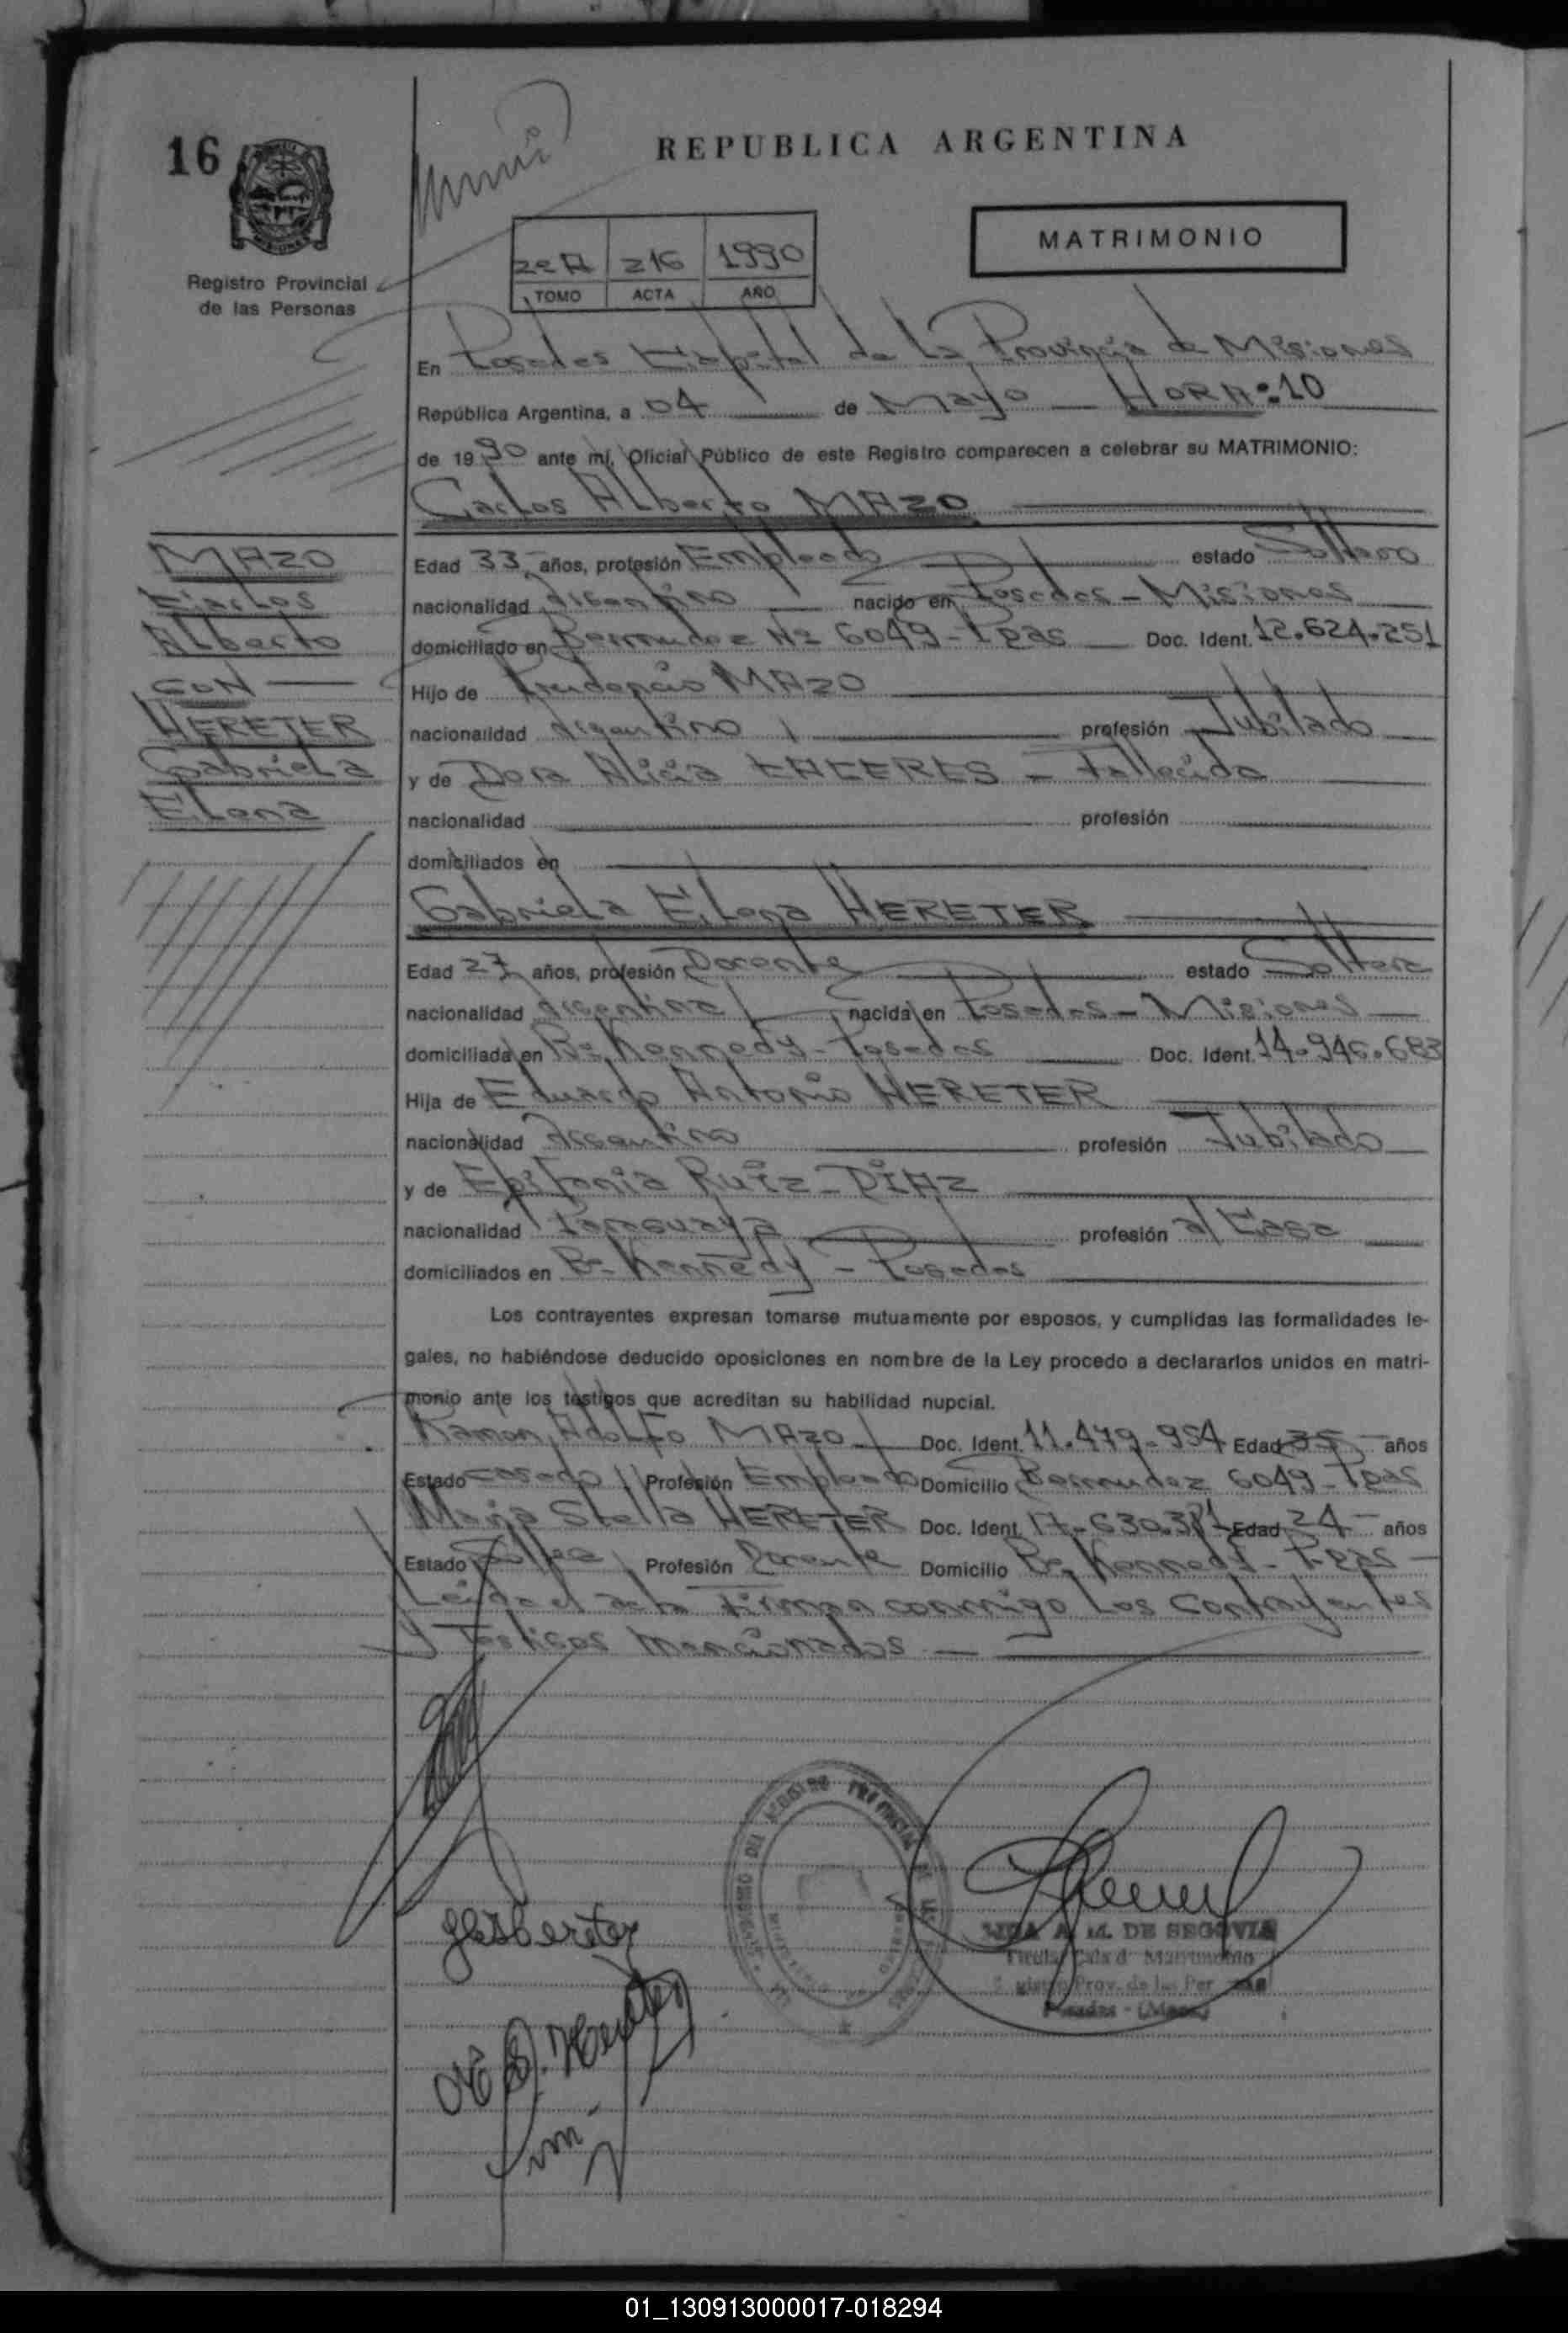 16
REPUBLICA ARGENTINA
MATRIMONIO
Registro Provincial
de las Personas
2º A 216 1990
TOMO ACTA AÑO
En Posadas Capital de la Provincia de Misiones
República Argentina, a 04 de Mayo HORA:10
de 1990 ante mí, Oficial Público de este Registro comparecen a celebrar su MATRIMONIO:
Carlos Alberto MAZO
MAZO
Carlos
Alberto
CON
HERETER
Gabriela
Elena
Edad 33 años, profesión Empleado estado Soltero
nacionalidad Argentino nacido en Posadas - Misiones
domiciliado en Bermudez Nº 6049 - Pdas Doc. Ident. 12.624.251
Hijo de Prudencio MAZO
nacionalidad Argentino profesión Jubilado
y de Dora Alicia CACERES - Fallecida
nacionalidad profesión
domiciliados en
Gabriela Elena HERETER
Edad 27 años, profesión Docente estado Soltera
nacionalidad Argentina nacida en Posadas - Misiones
domiciliada en Bº Kennedy - Posadas Doc. Ident. 14.946.683
Hija de Eduardo Antonio HERETER
nacionalidad Argentino profesión Jubilado
y de Epifania Ruiz - DIAZ
nacionalidad Paraguaya profesión a/ Casa
domiciliados en Bº Kennedy - Posadas
Los contrayentes expresan tomarse mutuamente por esposos, y cumplidas las formalidades le-
gales, no habiéndose deducido oposiciones en nombre de la Ley procedo a declararlos unidos en matri-
monio ante los testigos que acreditan su habilidad nupcial.
Ramon Adolfo MAZO Doc. Ident. 11.479.954 Edad 35 años
Estado casado Profesión Empleado Domicilio Bermudez 6049 - Pdas
Maria Stella HERETER Doc. Ident. 17.630.381 Edad 24 años
Estado Soltera Profesión Docente Domicilio Bº Kennedy - Pdas
Leida el acta Firman conmigo Los Contrayentes
y Testigos mencionados
A. M. DE SEGOVIA
Titular Sala d Matrimonio
Prov. de las Per
Posadas - (Mnes)
01_130913000017-018294